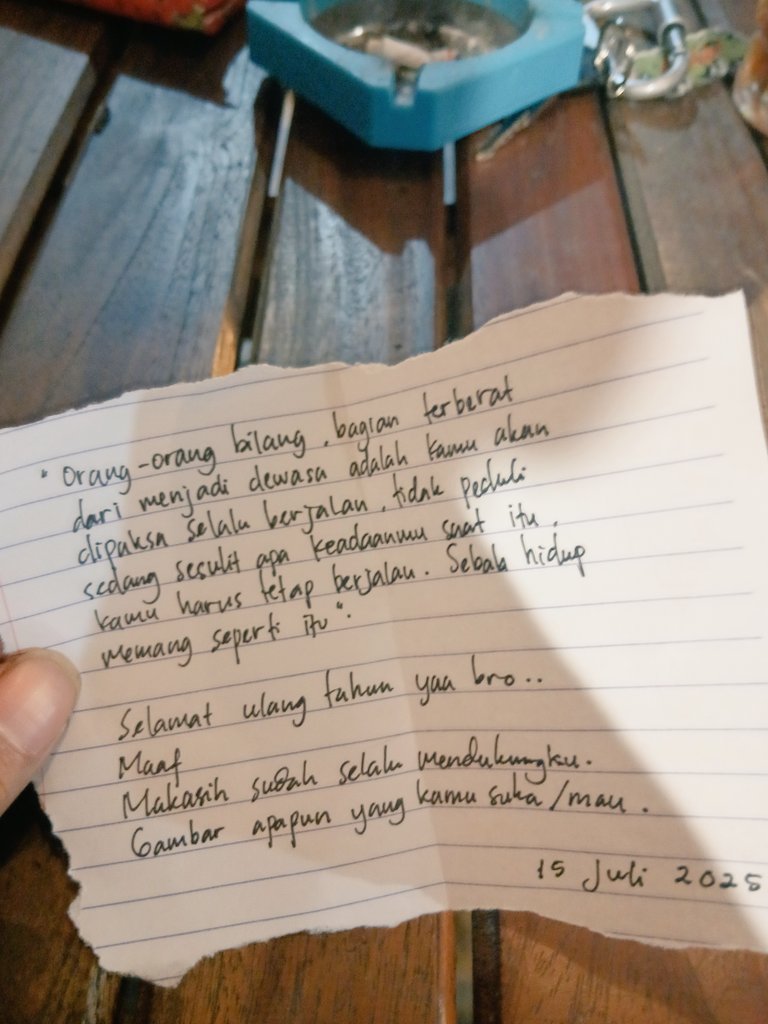 "Orang-orang bilang, bagian terberat
dari menjadi dewasa adalah kamu akan
dipaksa selalu berjalan, tidak peduli
sedang sesulit apa keadaanmu saat itu,
kamu harus tetap berjalan. Sebab hidup
memang seperti itu".
Selamat ulang tahun yaa bro..
Maaf
Makasih sudah selalu mendukungku.
Gambar apapun yang kamu suka/mau.
15 Juli 2025